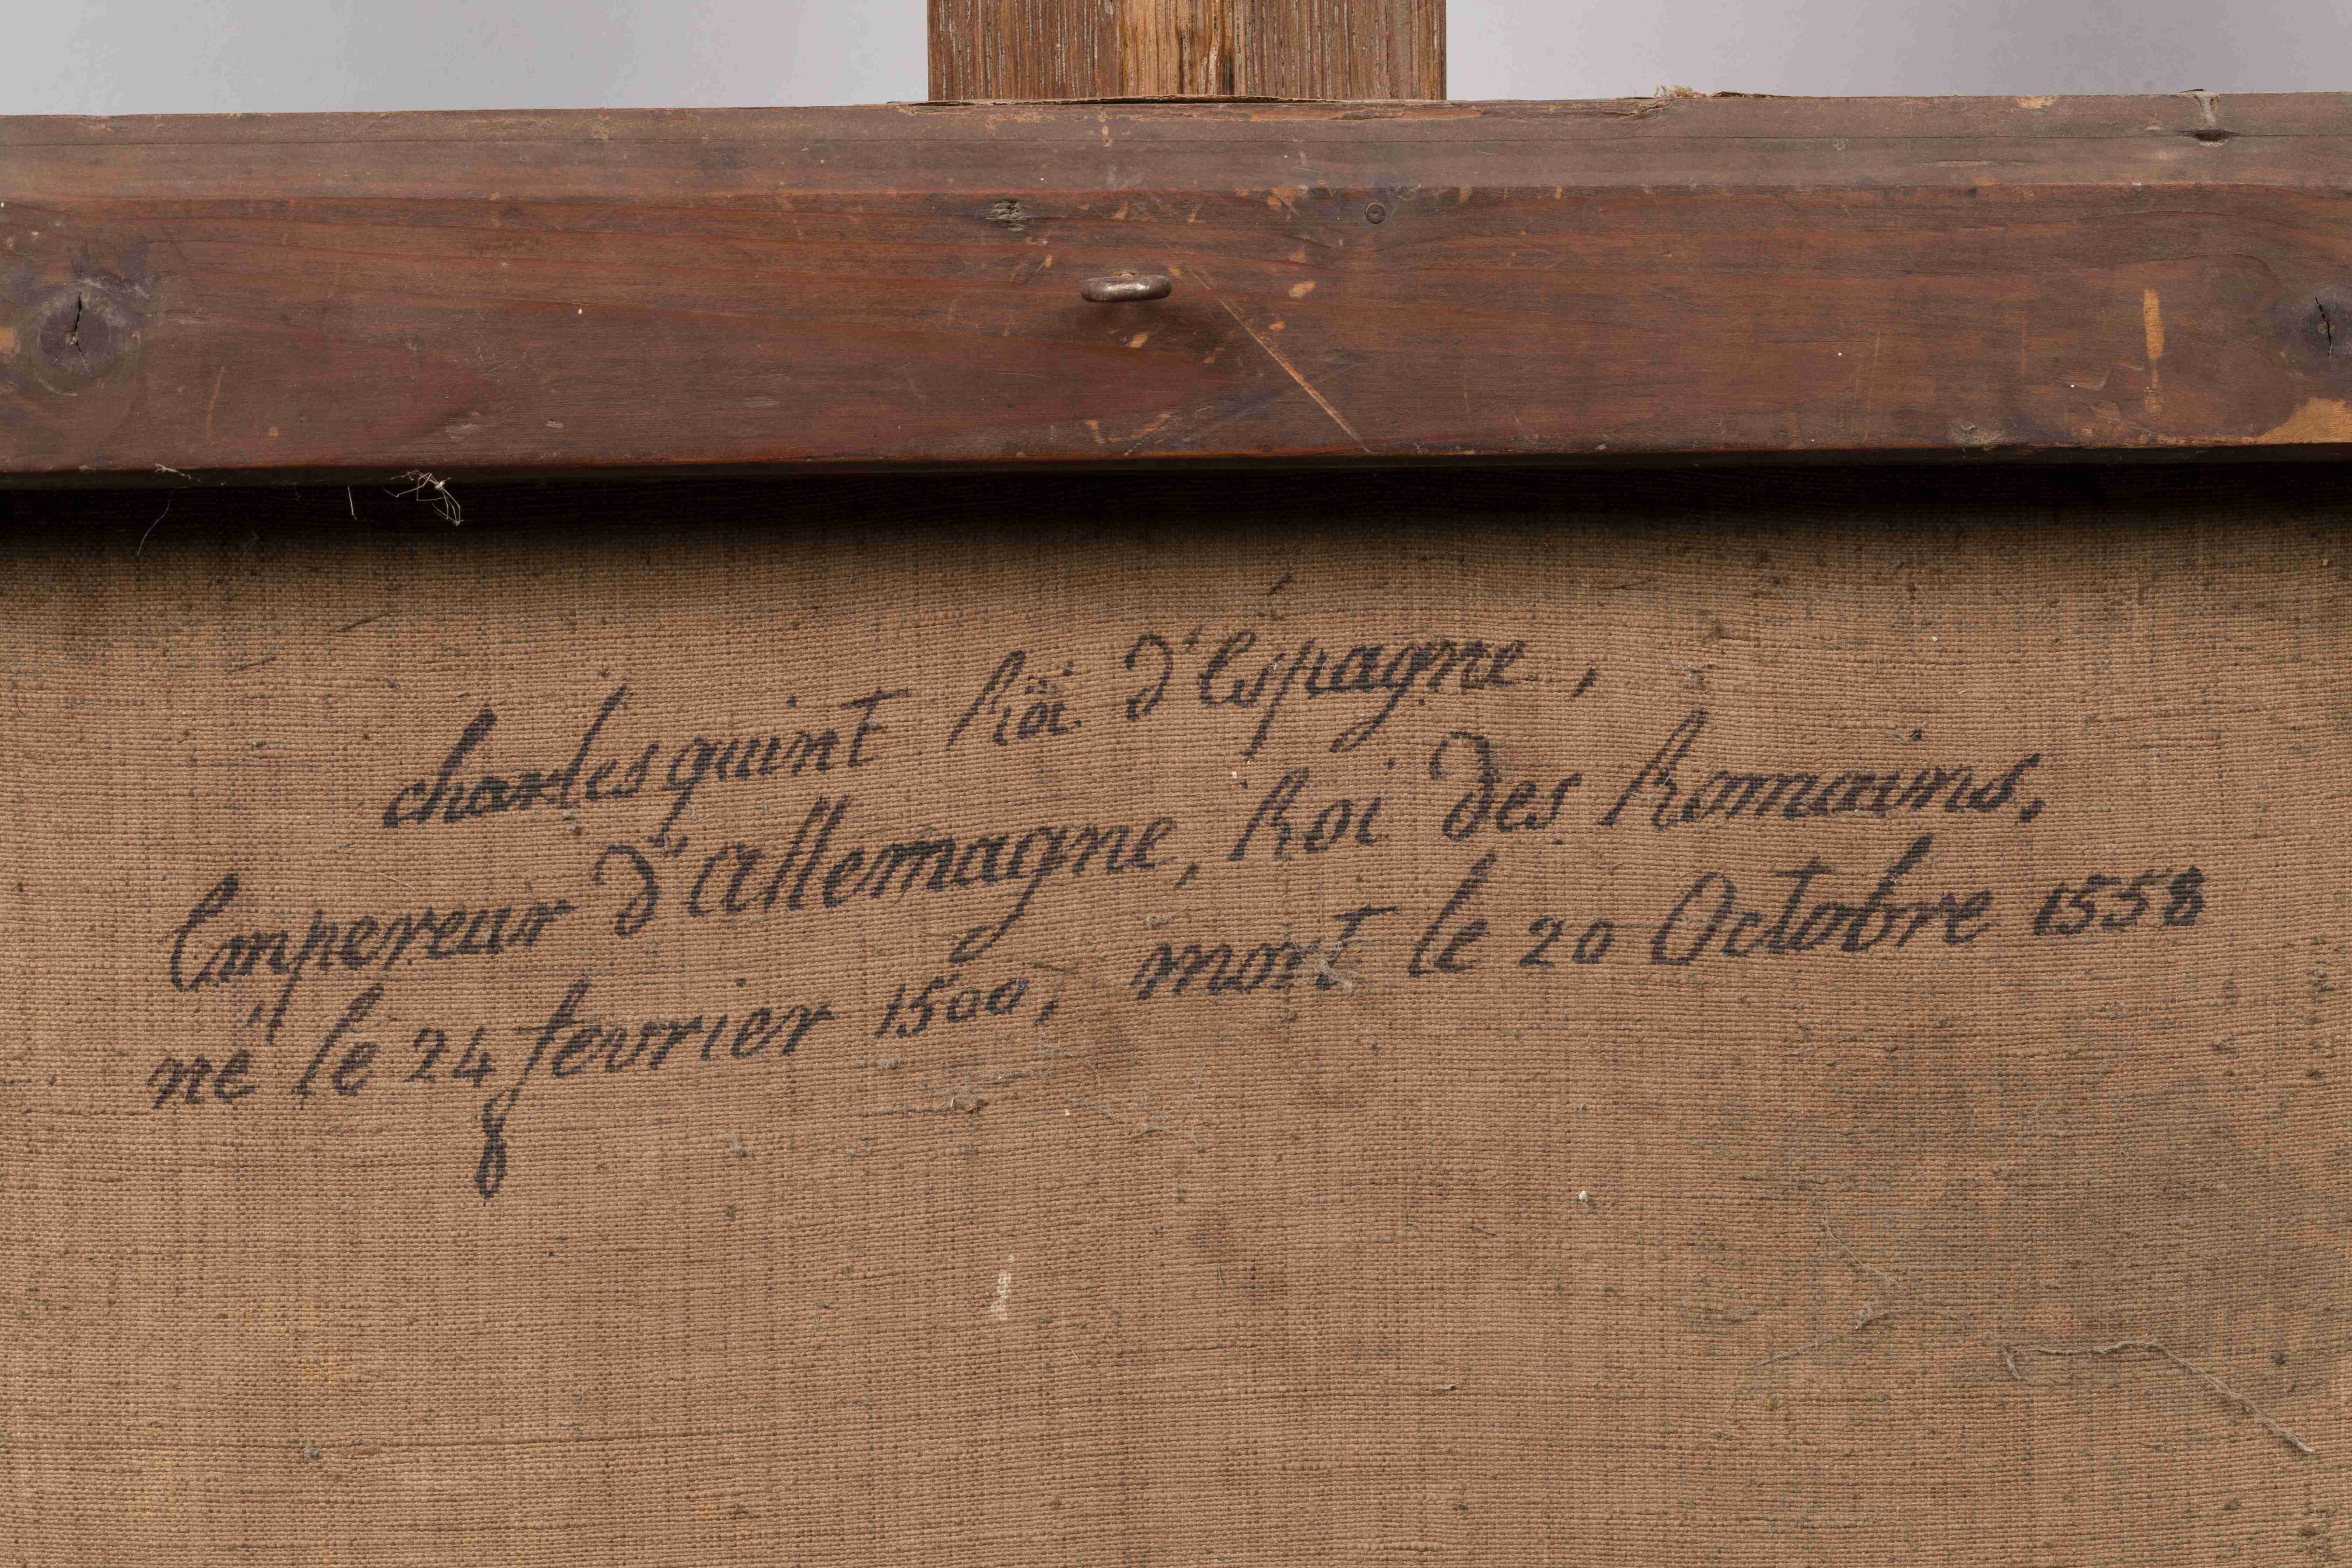 charlesquint Roi d'Espagne,
Empereur d'allemagne, Roi des Romains,
né le 24 fevrier 1500, mort le 20 Octobre 1558